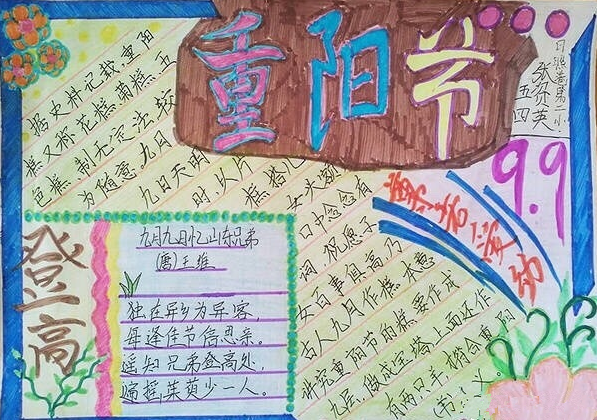 重阳节
日照港第二小
五四
9.9
尊老爱幼
据史料记载,重阳
糕又称花糕、菊糕、五
色糕,制无定法,较
为随意。九月
九日天明
时,以片
糕搭儿
女头额,
口中念念有
词,祝愿子
女百事俱高,乃
古人九月作糕本意
讲究重阳节的糕要作成
九层,做成宝塔上面还作
有两只羊,符合重阳
(南)之义。
登高
九月九日忆山东兄弟
(唐)王维
独在异乡为异客,
每逢佳节倍思亲。
遥知兄弟登高处,
茱萸少一人。